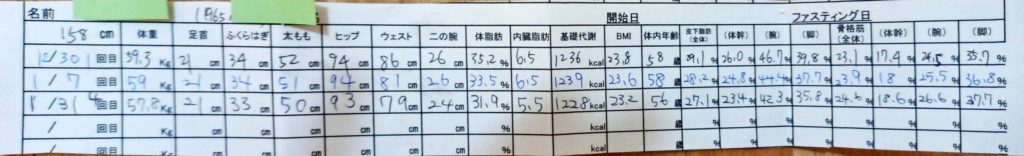 名前 開始日 ファスティング日
158 cm 体重 足首 ふくらはぎ 太もも ヒップ ウェスト 二の腕 体脂肪 内臓脂肪 基礎代謝 BMI 体内年齢 皮下脂肪(全体) (体幹) (腕) (脚) 骨格筋(全体) (体幹) (腕) (脚)
12/30 1 回目 59.3 Kg 21 cm 34 cm 52 cm 94 cm 86 cm 26 cm 35.2 % 6.5 1236 kcal 23.8 58 歳 29.1 % 26.0 % 46.7 % 39.8 % 23.1 % 17.4 % 24.5 % 35.7 %
1/7 回目 59 Kg 21 cm 34 cm 51 cm 94 cm 81 cm 26 cm 33.5 % 6.5 1239 kcal 23.6 58 歳 28.2 % 24.8 % 44.4 % 37.7 % 23.9 % 18 % 25.5 % 36.8 %
1/31 4 回目 57.8 Kg 21 cm 33 cm 50 cm 93 cm 79 cm 24 cm 31.9 % 5.5 1228 kcal 23.2 56 歳 27.1 % 23.4 % 42.3 % 35.8 % 24.6 % 18.6 % 26.6 % 37.7 %
/ 回目 Kg cm cm cm cm cm cm % kcal 歳 % % % % % % % %
/ 回目 Kg cm cm cm cm cm cm % kcal 歳 % % % % % % % %